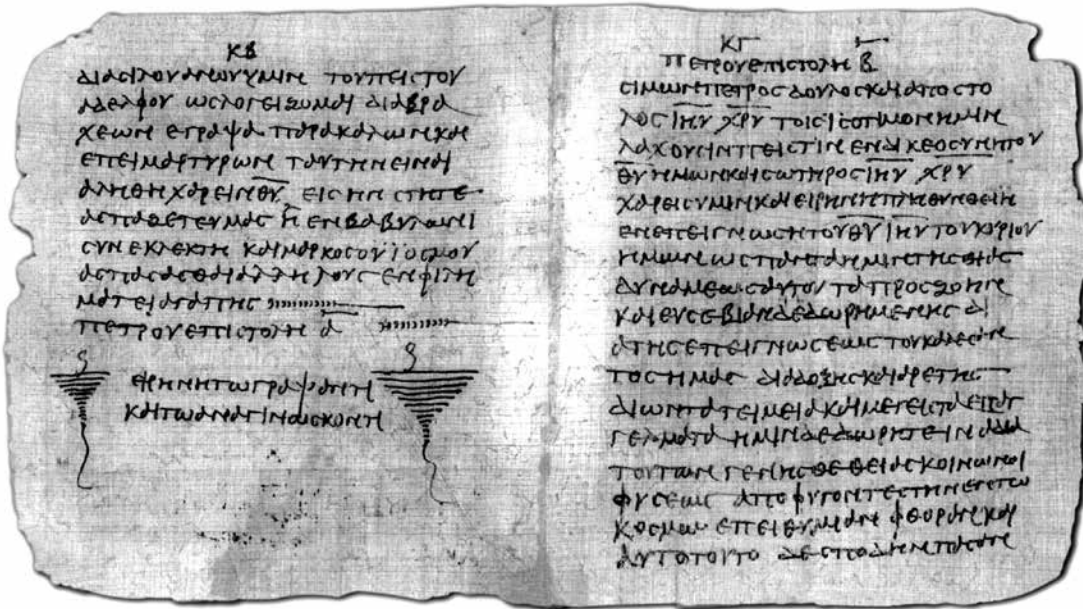 ΚΒ
ΔΙΑϹΙΛΟΥΑΝΟΥΥΜΙΝ ΤΟΥΠΙϹΤΟΥ
ΑΔΕΛΦΟΥ ΩϹΛΟΓΕΙΖΟΜΑΙ ΔΙΑΒΡΑ
ΧΕΩΝ ΕΓΡΑΨΑ ΠΑΡΑΚΑΛΩΝΚΑΙ
ΕΠΕΙΜΑΡΤΥΡΩΝ ΤΑΥΤΗΝΕΙΝΑΙ
ΑΛΗΘΗΧΑΡΕΙΝΘΥ ΕΙϹΗΝϹΤΗΤΕ
ΑϹΠΑΖΕΤΕΥΜΑϹ Η ΕΝΒΑΒΥΛΩΝΙ
ϹΥΝΕΚΛΕΚΤΗ ΚΑΙΜΑΡΚΟϹΟΥΙΟϹΜΟΥ
ΑϹΠΑϹΑϹΘΑΙΑΛΛΗΛΟΥϹ ΕΝΦΙΛΗ
ΜΑΤΕΙΑΓΑΠΗϹ
ΠΕΤΡΟΥΕΠΙϹΤΟΛΗ Α
ΕΙΡΗΝΗΤΩΓΡΑΨΑΝΤΙ
ΚΑΙΤΩΑΝΑΓΙΝΩϹΚΟΝΤΙ
ΚΓ
ΠΕΤΡΟΥΕΠΙϹΤΟΛΗ Β
ϹΙΜΩΝΠΕΤΡΟϹ ΔΟΥΛΟϹΚΑΙΑΠΟϹΤΟ
ΛΟϹ ΙΗΥ ΧΡΥ ΤΟΙϹΙϹΟΤΙΜΟΝΗΜΙΝ
ΛΑΧΟΥϹΙΝΠΕΙϹΤΙΝ ΕΝΔΙΚΕΟϹΥΝΗΤΟΥ
ΘΥ ΗΜΩΝΚΑΙϹΩΤΗΡΟϹ ΙΗΥ ΧΡΥ
ΧΑΡΕΙϹΥΜΙΝΚΑΙΕΙΡΗΝΗΠΛΗΘΥΝΘΕΙΗ
ΕΝΕΠΕΙΓΝΩϹΗΤΟΥΘΥ ΙΗΥ ΤΟΥΚΥΡΙΟΥ
ΗΜΩΝ ΩϹΠΑΝΤΑΗΜΙΝΤΗϹΘΙΑϹ
ΔΥΝΑΜΕΩϹΑΥΤΟΥ ΤΑΠΡΟϹΖΩΗΝ
ΚΑΙΕΥϹΕΒΙΑΝΔΕΔΩΡΗΜΕΝΗϹ ΔΙ
ΑΤΗϹ ΕΠΕΙΓΝΩϹΕΩϹ ΤΟΥΚΑΛΕϹΑΝ
ΤΟϹΗΜΑϹ ΔΙΑΔΟΞΗϹΚΑΙΑΡΕΤΗϹ
ΔΙΩΝΤΑΤΕΙΜΕΙΑΚΑΙΜΕΓΕΙϹΤΑΕΠΑΓ
ΓΕΛΜΑΤΑ ΗΜΙΝΔΕΔΩΡΗΤΕΙΝΑΔΙΑ
ΤΟΥΤΩΝ ΓΕΝΗϹΘΕΘΕΙΑϹΚΟΙΝΩΝΟΙ
ΦΥϹΕΩϹ ΑΠΟΦΥΓΟΝΤΕϹΤΗΝΕΝΤΩ
ΚΟϹΜΩ ΕΠΕΙΘΥΜΙΑΝ ΦΘΟΡΑΝΚΑΙ
ΑΥΤΟΤΟΥΤΟ ΔΕϹΠΟΔΗΝΠΑϹΑΝ